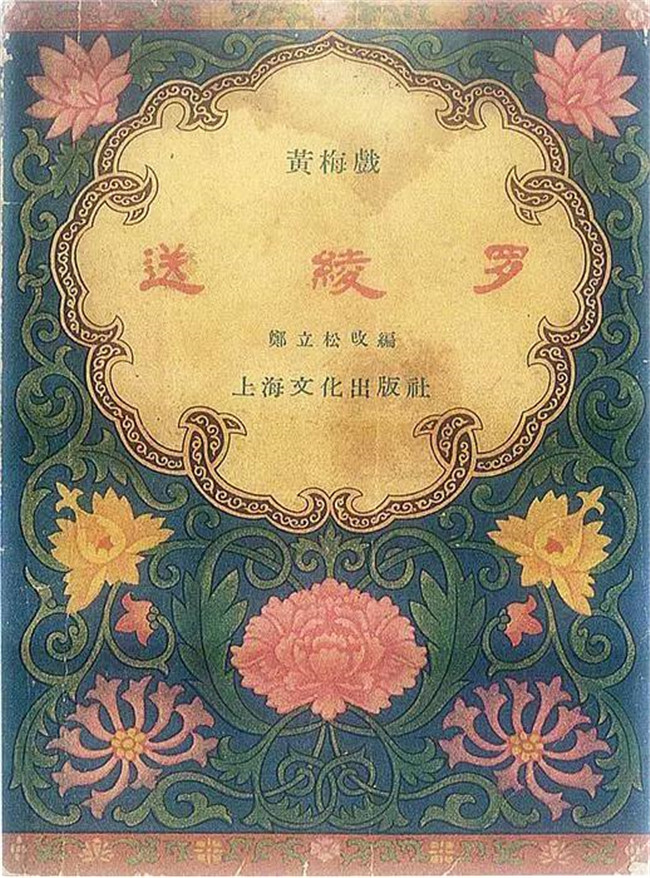 黃梅戲
送綾罗
鄭立松收編
上海文化出版社